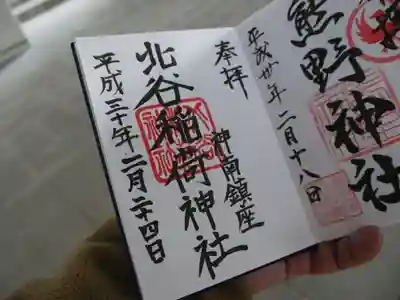 平成卅年二月十八日
熊野神社
奉拝
神南鎮座
北谷稲荷神社
平成三十年二月二十四日